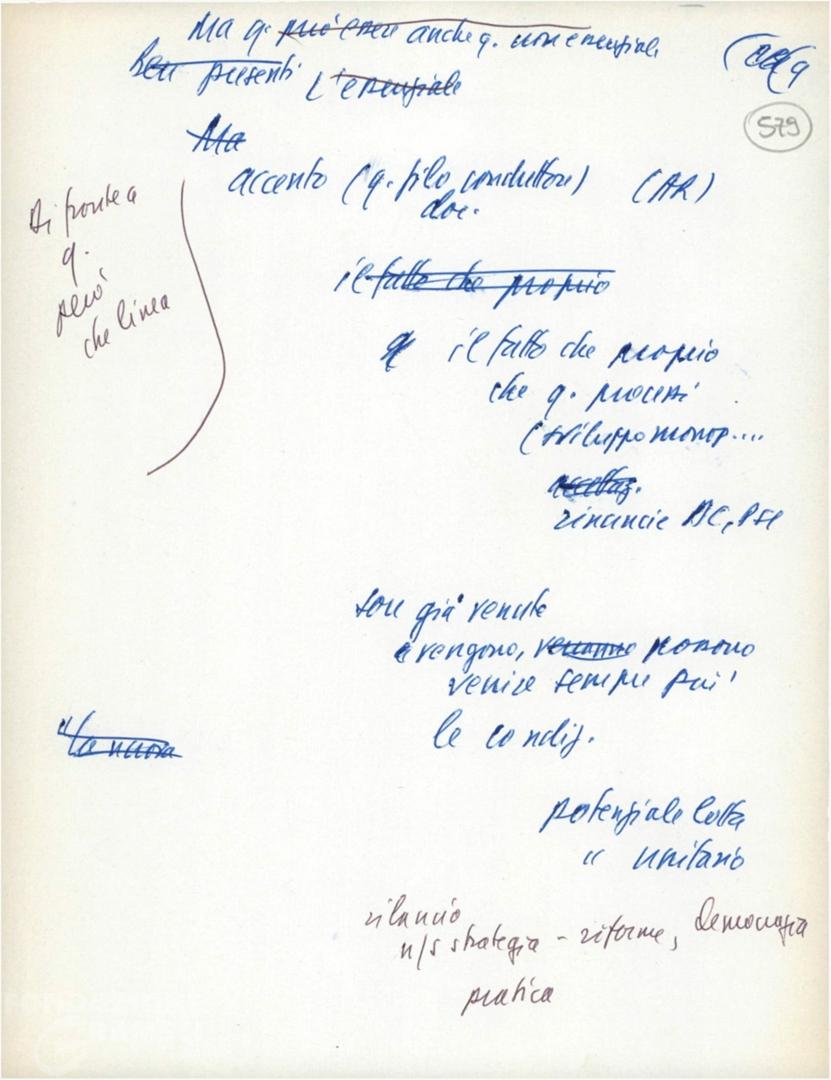 Ma q. può essere anche q. non essenziale
Ben presenti L'essenziale
579
Ma
accento (q. filo conduttore) (AR)
doc.
Di fronte a
q.
però
che linea
il fatto che proprio
il fatto che proprio
che q. processi
(sviluppo monop....
accettaz.
rinuncie DC, PSI
son già venute
e vengono, verranno possono
venire sempre più
"La nuova
le condiz.
potenziale lotta
" unitario
rilancio
n/s strategia - riforme, Democrazia
pratica